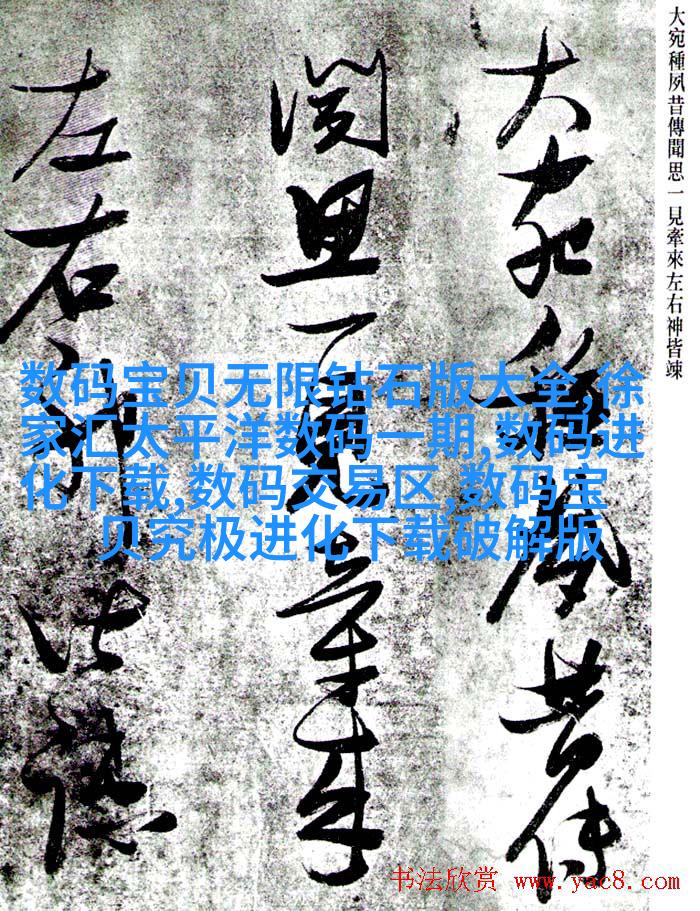 大宛種夙昔傳聞思一見牽來左右神皆竦
大宛種夙昔傳
聞思一見牽来
左右神皆竦
数码宝贝无限钻石版大全,徐
家汇太平洋数码一期,数码进
化下载,数码交易区,数码宝
贝究极进化下载破解版
书法欣赏 www.yac8.com